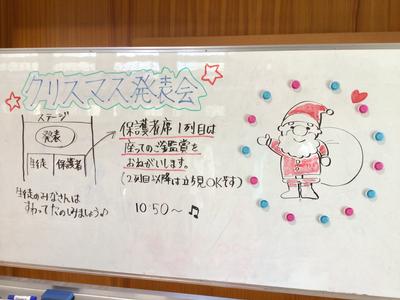 クリスマス発表会
ステージ
発表
生徒
保護者
保護者席1列目は
座ってのご鑑賞を
おねがいします。
(2列目以降は立ち見OKです)
生徒のみなさんは
すわってたのしみましょう♪
10:50〜♫